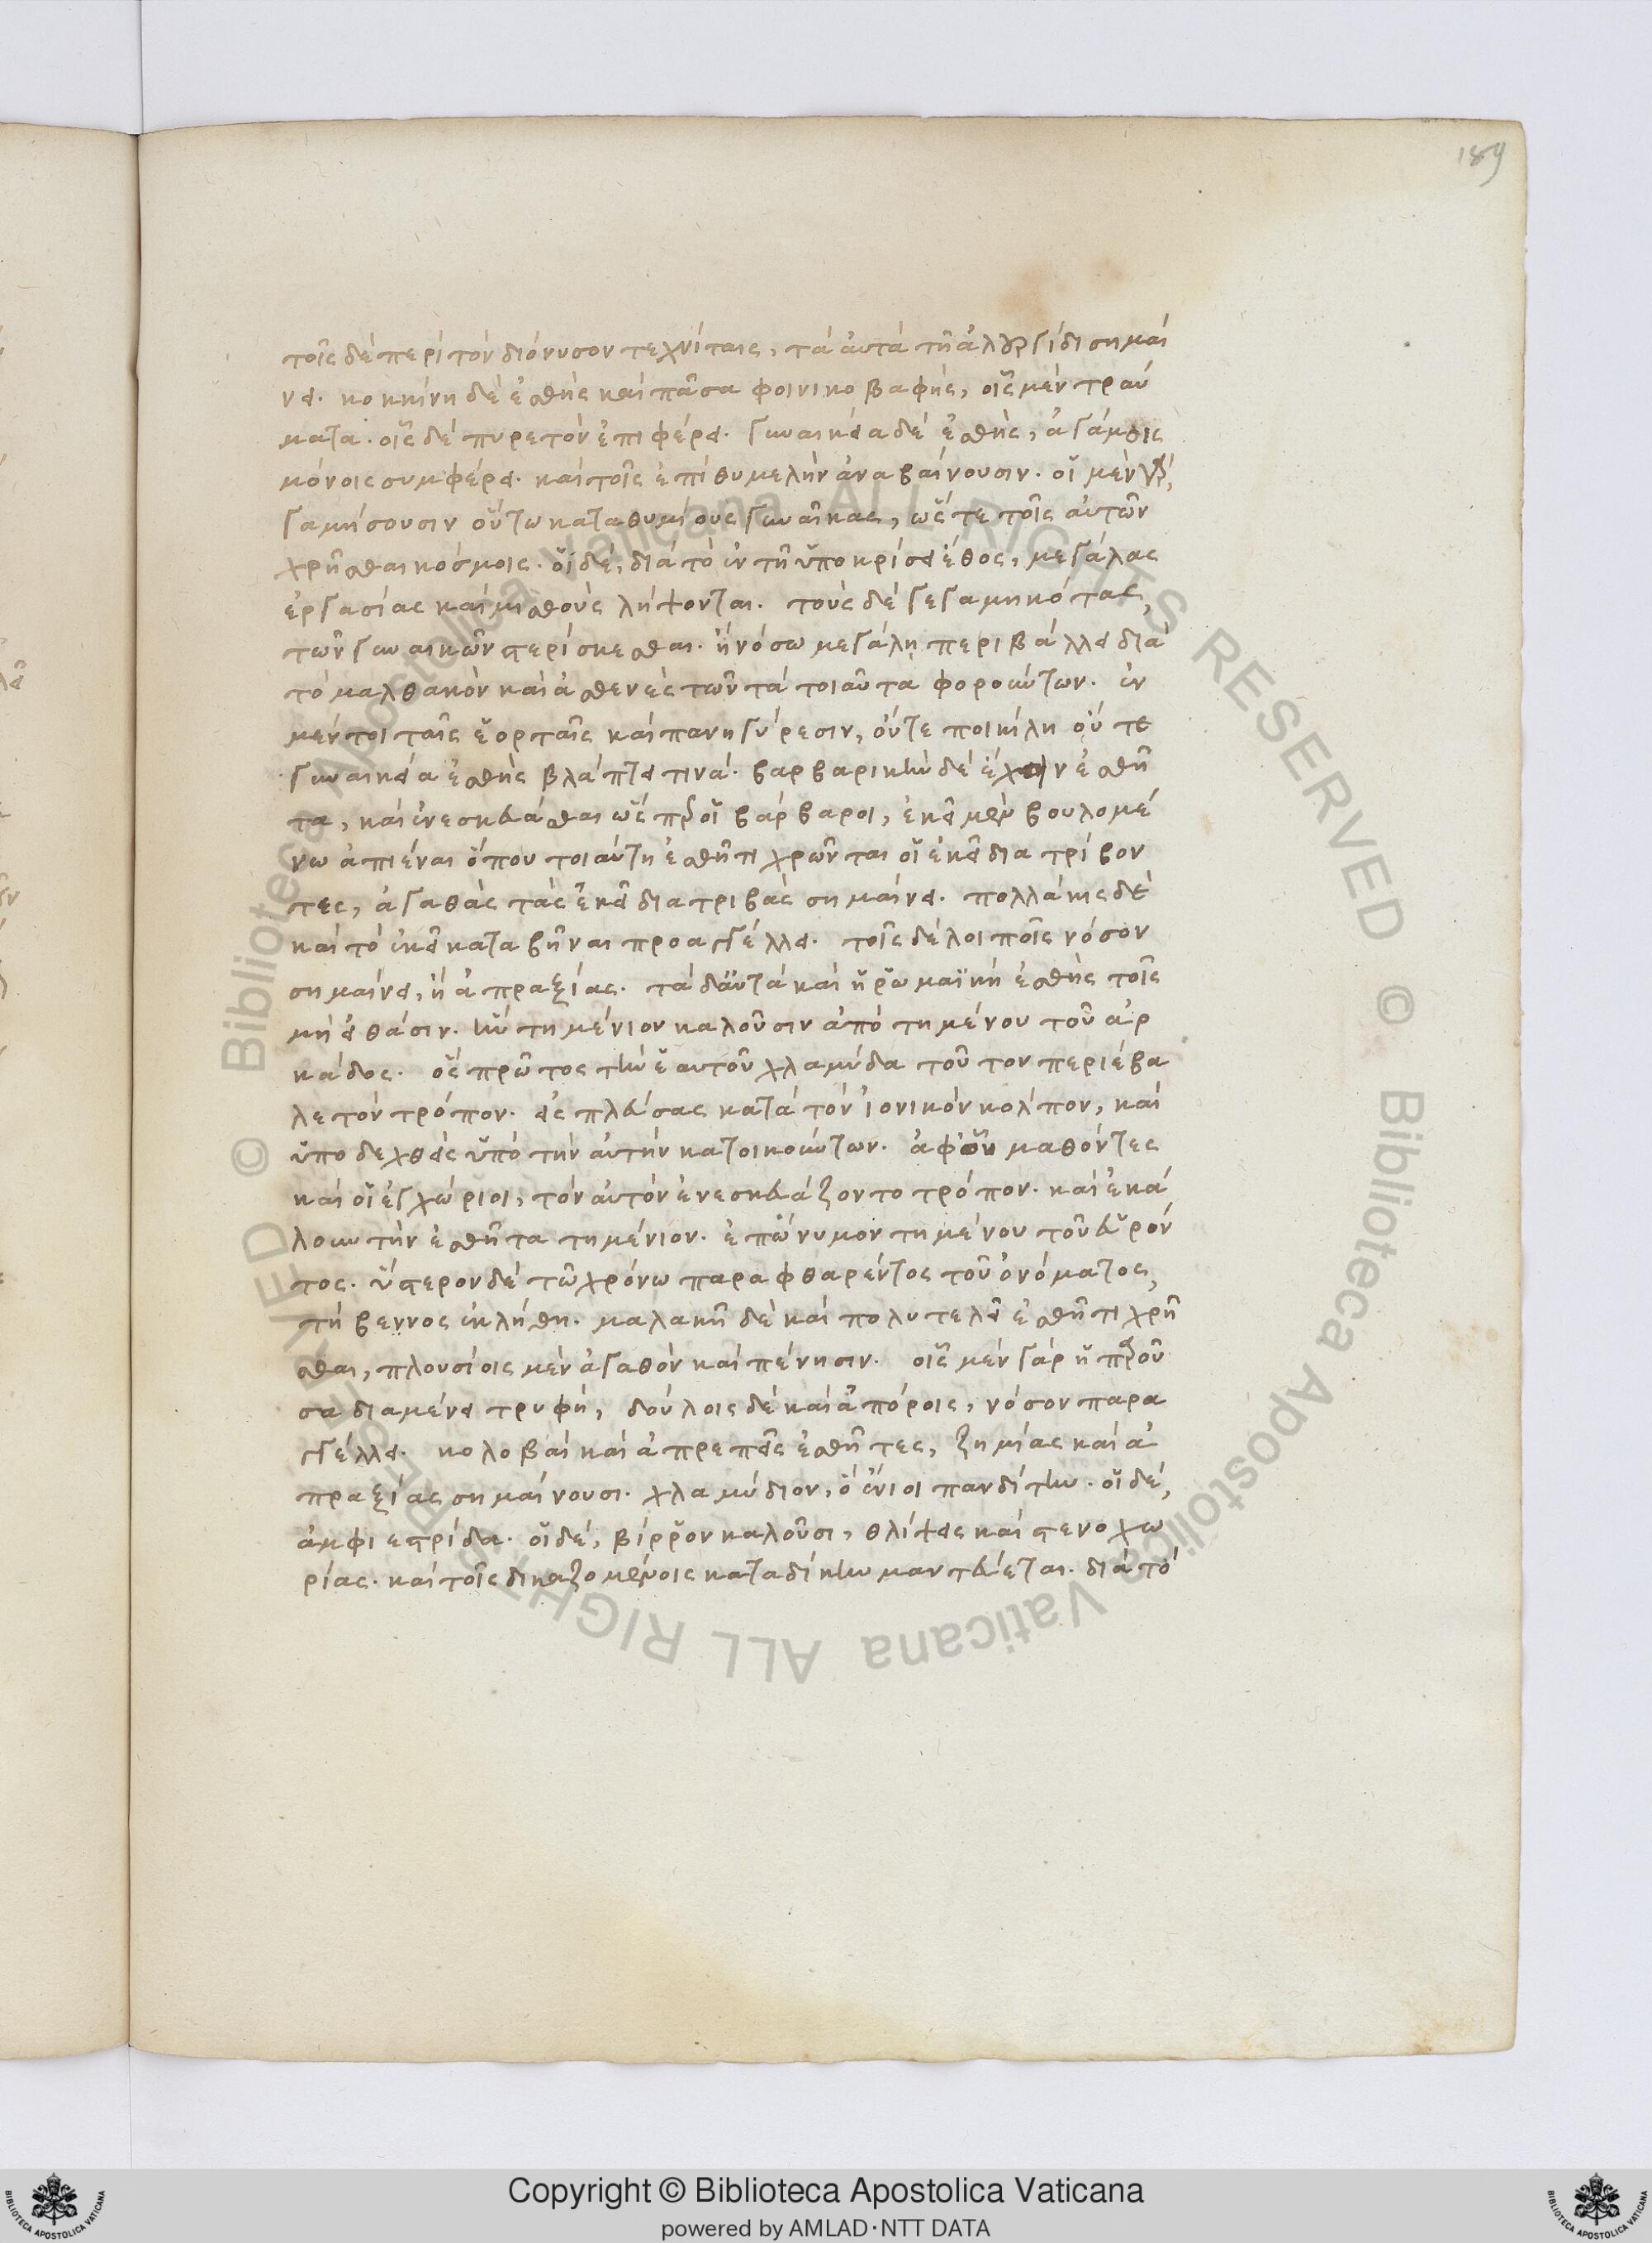 189
τοῖς δὲ περὶ τὸν διόνυσον τεχνίταις, τὰ αὐτὰ τῇ ἁλουργίδι σημαί
νει. κοκκίνη δὲ ἐσθὴς καὶ πᾶσα φοινικοβαφὴς, οἷς μὲν τραύ
ματα. οἷς δὲ πυρετὸν ἐπιφέρει. γυναικεία δὲ ἐσθὴς, ἀγάμοις
μόνοις συμφέρει. καὶ τοῖς ἐπὶ θυμελὴν ἀναβαίνουσιν. οἱ μὲν γὰρ,
γαμήσουσιν οὕτω καταθυμίους γυναῖκας, ὥστε τοῖς αὐτῶν
χρῆσθαι κόσμοις. οἱ δὲ, διὰ τὸ ἐν τῇ ὑποκρίσει ἔθος, μεγάλας
ἐργασίας καὶ μισθοὺς λήψονται. τοὺς δὲ γεγαμηκότας,
τῶν γυναικῶν στερίσκεσθαι. ἢ νόσω μεγάλη περιβάλλει διὰ
τὸ μαλθακὸν καὶ ἀσθενὲς τῶν τὰ τοιαῦτα φορούντων. ἐν
μέντοι ταῖς ἑορταῖς καὶ πανηγύρεσιν, οὔτε ποικίλη οὔτε
γυναικεία ἐσθὴς βλάπτει τινά. βαρβαρικὴν δὲ ἔχειν ἐσθῆ
τα, καὶ ἐνεσκευάσθαι ὡς περ οἱ βάρβαροι, ἐκεῖ μὲν βουλομέ
νω ἀπιέναι ὅπου τοιαύτη ἐσθῆτι χρῶνται οἱ ἐκεῖ διατρίβον
τες, ἀγαθὰς τὰς ἐκεῖ διατριβὰς σημαίνει. πολλάκις δὲ
καὶ τὸ ἐκεῖ καταβῆναι προαγγέλλει. τοῖς δὲ λοιποῖς νόσον
σημαίνει, ἢ ἀπραξίας. τὰ δ'αὐτὰ καὶ ἡ ῥωμαϊκὴ ἐσθὴς τοῖς
μὴ εἰθάσιν. ἣν τημένιον καλοῦσιν ἀπὸ τημένου τοῦ ἀρ
κάδος. ὃς πρῶτος τὴν ἑαυτοῦ χλαμύδα τοῦτον περιέβα
λε τὸν τρόπον. εἰς πλεύσας κατὰ τὸν ἰονικὸν κόλπον, καὶ
ὑποδεχθεὶς ὑπὸ τὴν αὐτὴν κατοικούντων. ἀφ' οὗ μαθόντες
καὶ οἱ ἐγχώριοι, τὸν αὐτὸν ἐνεσκευάζοντο τρόπον. καὶ ἐκά
λουν τὴν ἐσθῆτα τημένιον. ἐπώνυμον τημένου τοῦ εὑρόν
τος. ὕστερον δὲ τῶ χρόνω παραφθαρέντος τοῦ ὀνόματος,
τήβεννος ἐκλήθη. μαλακῇ δὲ καὶ πολυτελεῖ ἐσθῆτι χρῆ
σθαι, πλουσίοις μὲν ἀγαθὸν καὶ πένησιν. οἷς μὲν γὰρ ἡ παροῦ
σα διαμένει τρυφὴ, δούλοις δὲ καὶ ἀπόροις, νόσον παρα
γγέλλει. κολοβαὶ καὶ ἀπρεπεῖς ἐσθῆτες, ζημίας καὶ ἀ
πραξίας σημαίνουσι. χλαμύδιον, ὃ ἔνιοι πανδίτην. οἱ δὲ,
ἀμφιεστρίδα. οἱ δὲ, βίρρον καλοῦσι, θλίψεις καὶ στενοχω
ρίας. καὶ τοῖς δικαζομένοις καταδίκην μαντεύεται. διὰ τὸ
© Biblioteca Apostolica Vaticana ALL RIGHTS RESERVED © Biblioteca Apostolica Vaticana ALL RIGHTS RESERVED
Copyright © Biblioteca Apostolica Vaticana
powered by AMLAD·NTT DATA
BIBLIOTECA APOSTOLICA VATICANA
BIBLIOTECA APOSTOLICA VATICANA